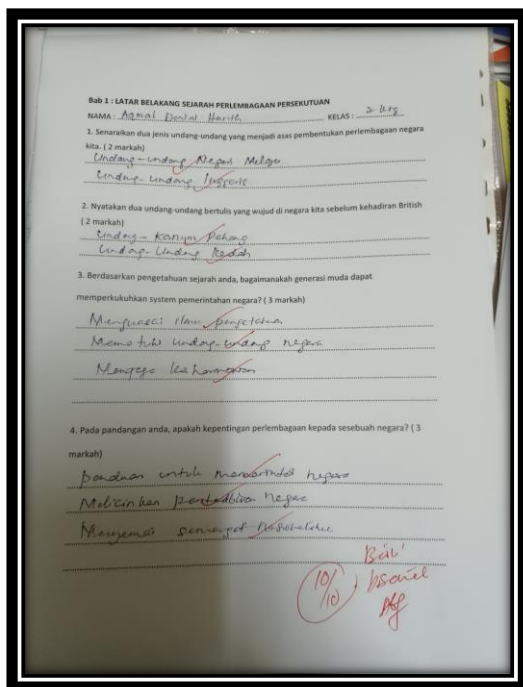 Bab 1 : LATAR BELAKANG SEJARAH PERLEMBAGAAN PERSEKUTUAN
NAMA : Aqmal Danial Harith KELAS :
1. Senaraikan dua jenis undang-undang yang menjadi asas pembentukan perlembagaan negara
kita. ( 2 markah)
Undang-undang Negeri Melayu
Undang-undang Inggeris
2. Nyatakan dua undang-undang bertulis yang wujud di negara kita sebelum kehadiran British
( 2 markah)
Undang-Kanun Pahang
Undang-Undang Kedah
3. Berdasarkan pengetahuan sejarah anda, bagaimanakah generasi muda dapat
memperkukuhkan system pemerintahan negara? ( 3 markah)
Menguasai ilmu pengetahuan
Mematuhi undang-undang negara
Menjaga keharmonian
4. Pada pandangan anda, apakah kepentingan perlembagaan kepada sesebuah negara? ( 3
markah)
panduan untuk memerintah negara
Melicinkan pentadbiran negara
Menyemai semangat
10/10